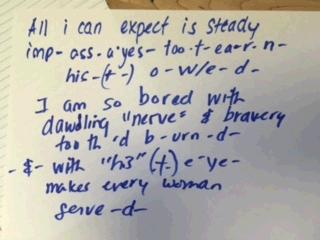 All i can expect is steady
imp- ass- a-yes- too-t-ea-r-n-
his-(t-) o-w/e-d-
I am so bored with
dawdling "nerve" & bravery
too th-d b-urn-d-
-&- with "h3" (t-) e-ye-
makes every woman
serve-d-